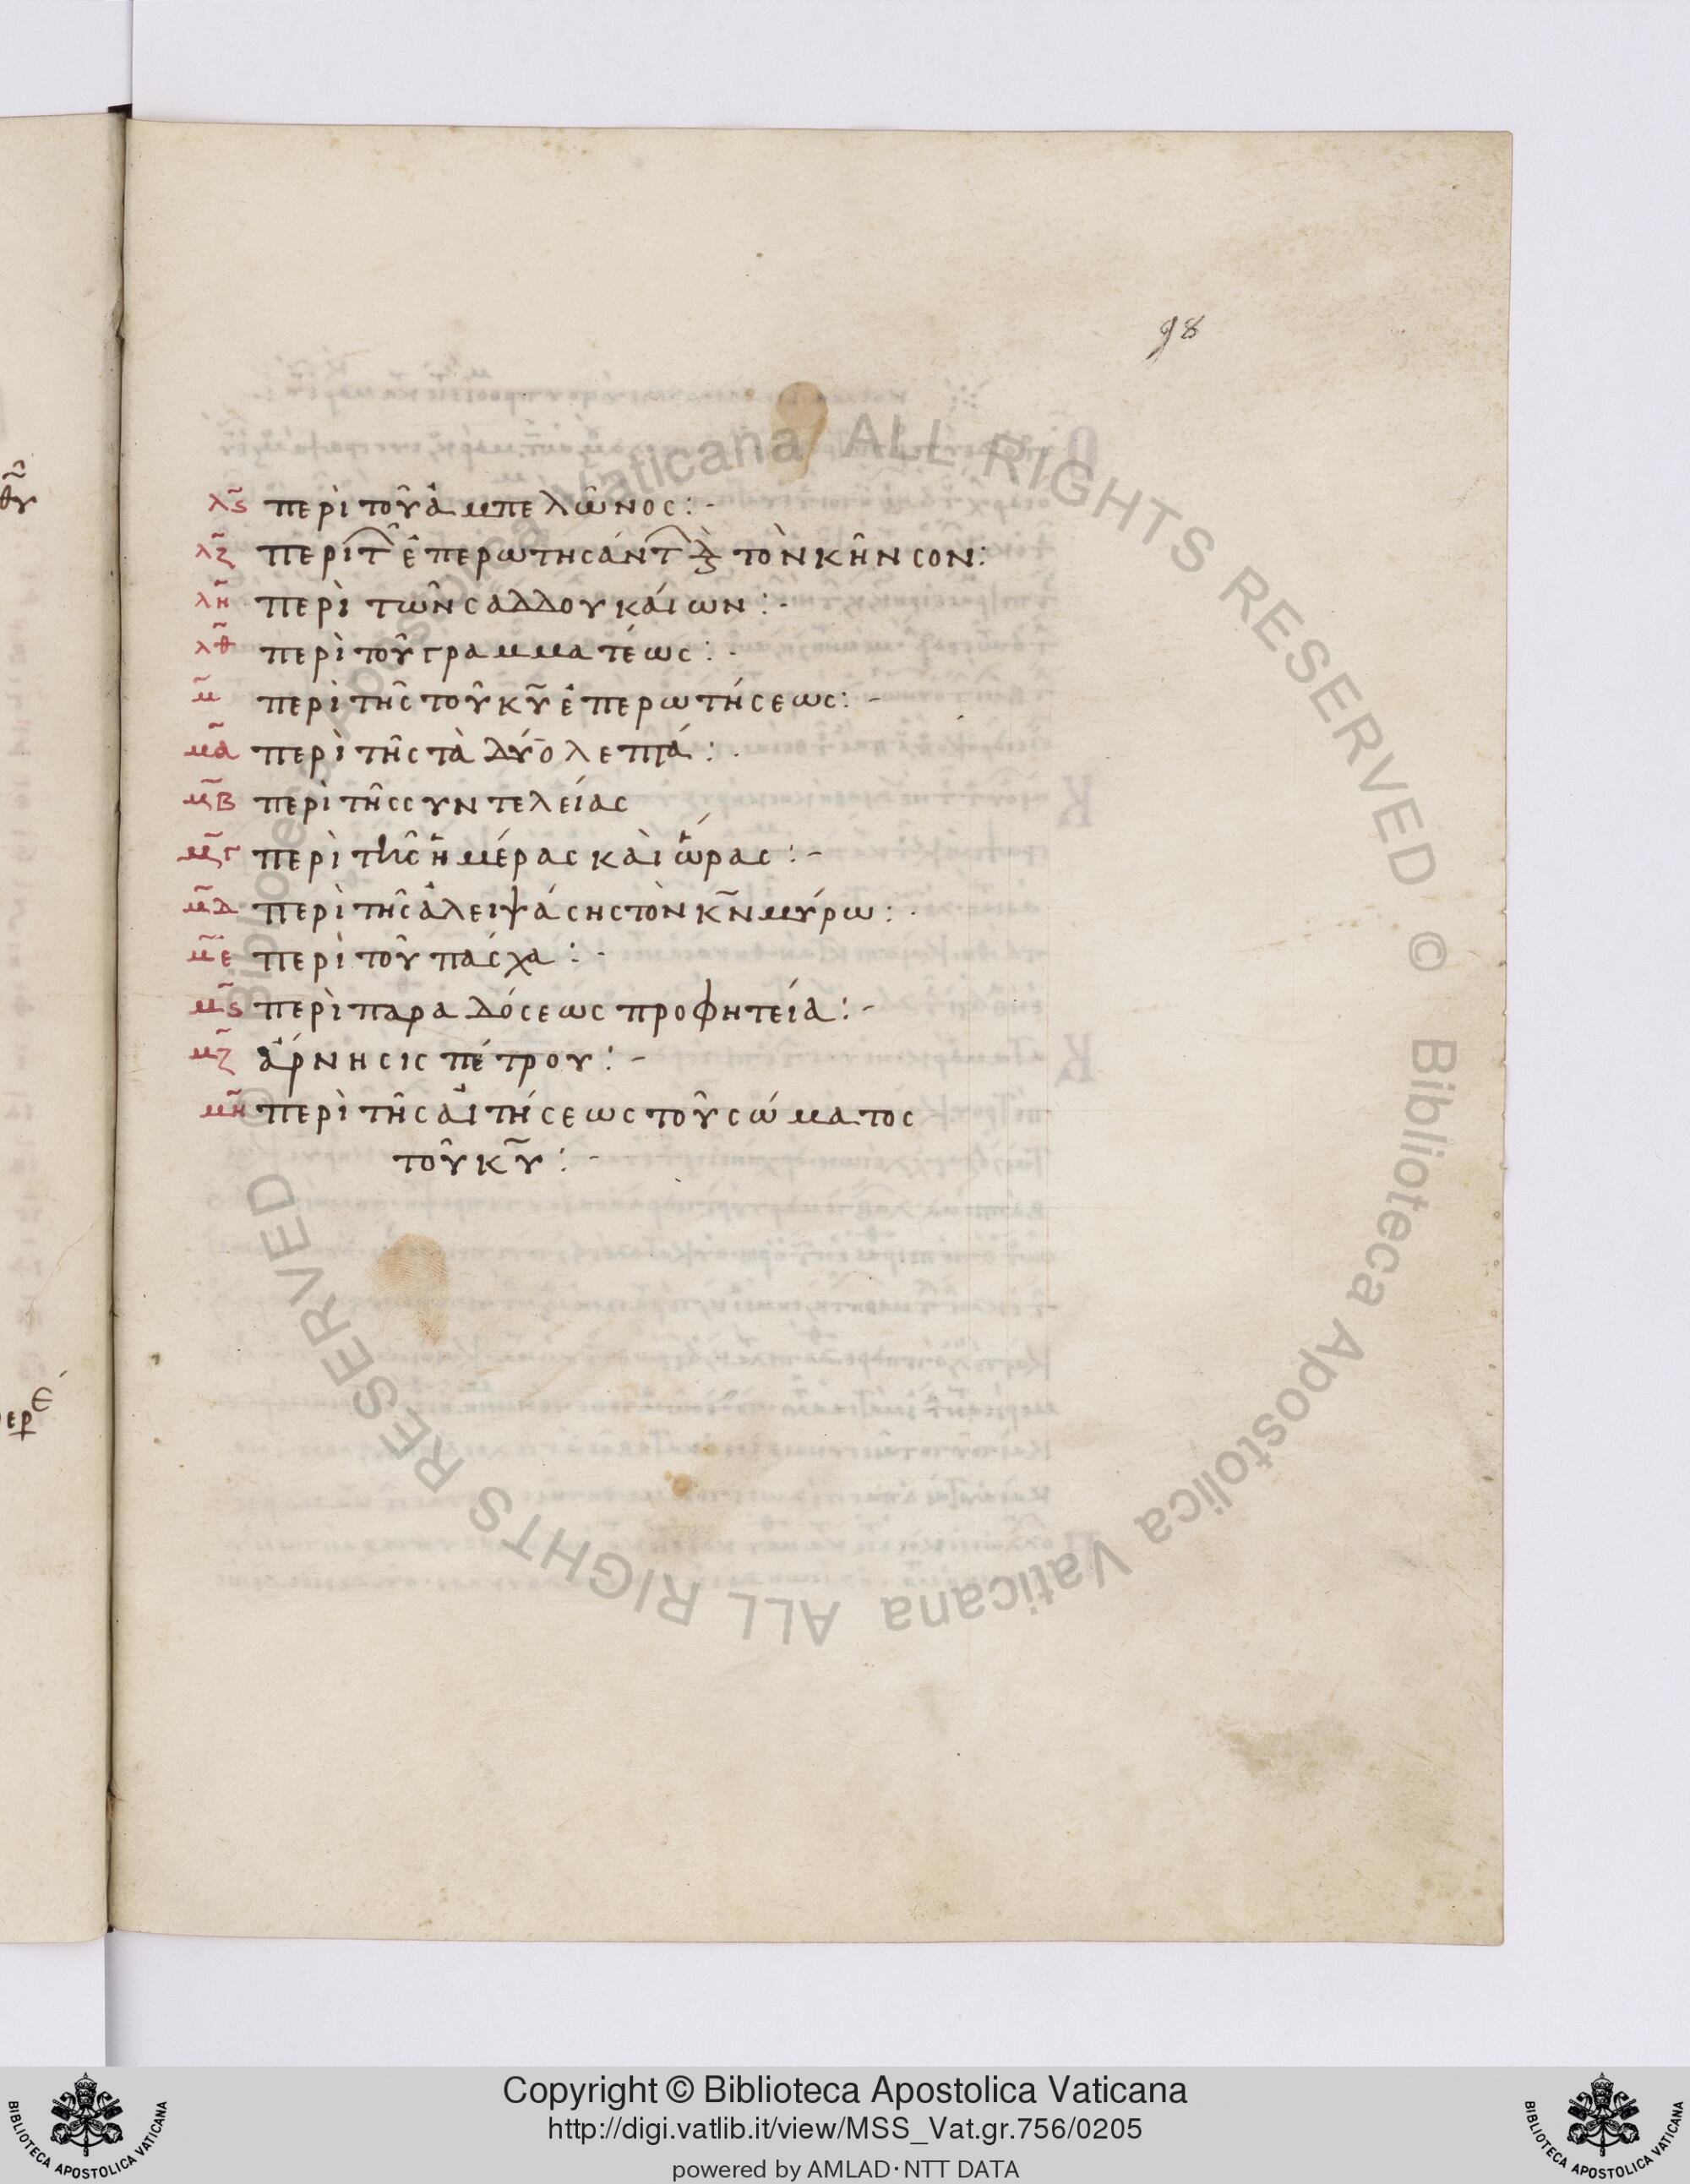 98
λς̃ περὶ τοῦ ἀμπελῶνος:-
λζ̃ περὶ τ͂ ἐπερωτησάντ δ̀ τὸν κῆνσον:
λη̃ περὶ τῶν σαδδουκάιων:-
λθ̃ περὶ τοῦ γραμματέως:-
μ̃ περὶ τῆς τοῦ κ̅υ̅ ἐπερωτήσεως:-
μα̃ περὶ τῆς τὰ δύο λεπτά:-
μ̃β περὶ τῆς συντελείας
μ̃γ περὶ τῆς ἡμέρας κὰι ὥρας:-
μ̃δ περὶ τῆς ἀλειψάσης τὸν κ̅ν̅ μύρω:-
μ̃ε περὶ τοῦ πάσχα:-
μ̃ς περὶ παραδόσεως προφητεία:-
μ̃ζ ἄρνησις πέτρου:-
μη̃ περὶ τῆς αἰτήσεως τοῦ σώματος
τοῦ κ̅υ̅:-
Copyright © Biblioteca Apostolica Vaticana
http://digi.vatlib.it/view/MSS_Vat.gr.756/0205
powered by AMLAD·NTT DATA
© Biblioteca Apostolica Vaticana ALL RIGHTS RESERVED © Biblioteca Apostolica Vaticana ALL RIGHTS RESERVED
BIBLIOTECA APOSTOLICA VATICANA
BIBLIOTECA APOSTOLICA VATICANA